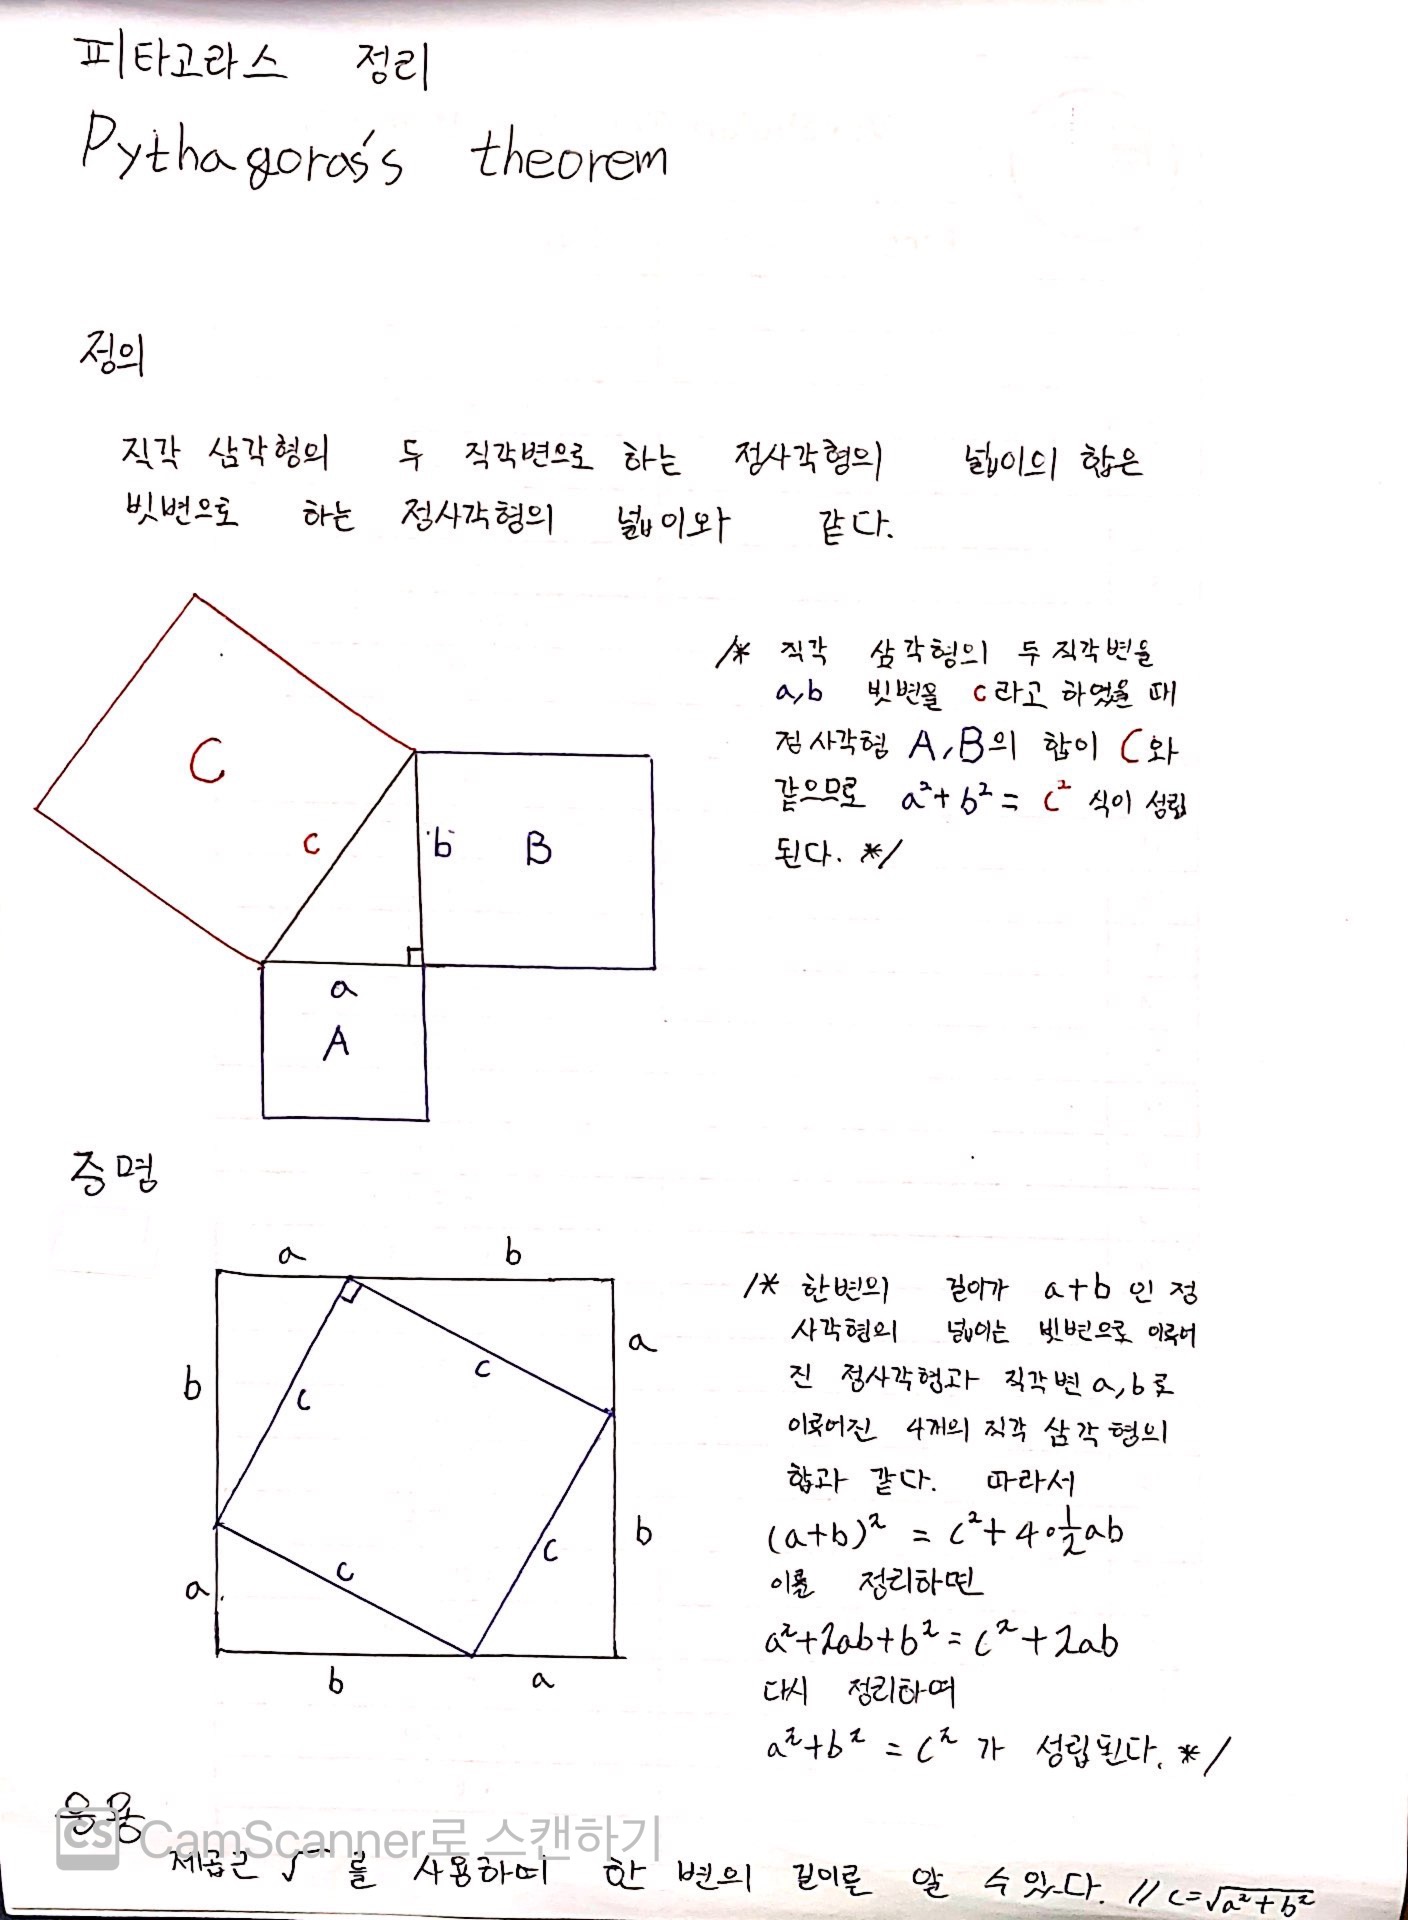 피타고라스 정리
Pythagoras's theorem
정의
직각 삼각형의 두 직각변으로 하는 정사각형의 넓이의 합은
빗변으로 하는 정사각형의 넓이와 같다.
/* 직각 삼각형의 두 직각변을
a,b 빗변을 c라고 하였을 때
정사각형 A,B의 합이 C와
같으므로 a²+b²=c² 식이 성립
된다. */
C
c
b
B
a
A
증명
a b
b
c
c
a
a
c
c
b
b a
/* 한변의 길이가 a+b 인 정
사각형의 넓이는 빗변으로 이루어
진 정사각형과 직각변 a,b로
이루어진 4개의 직각 삼각형의
합과 같다. 따라서
(a+b)² = c²+4∘½ab
이를 정리하면
a²+2ab+b²=c²+2ab
다시 정리하여
a²+b²=c² 가 성립된다. */
응용
CS CamScanner로 스캔하기
제곱근 √ 를 사용하여 한 변의 길이를 알 수 있다. // c=√a²+b²